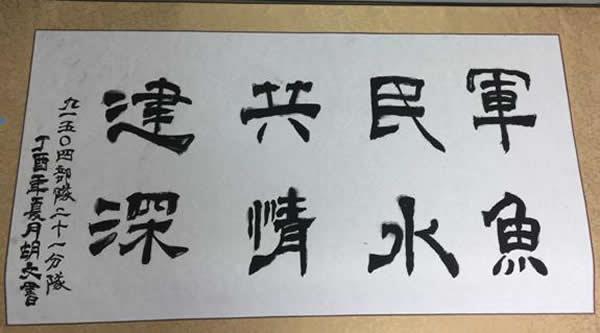 軍民共建
魚水情深
九一五〇四部隊二十一分隊
丁酉年夏月胡文書